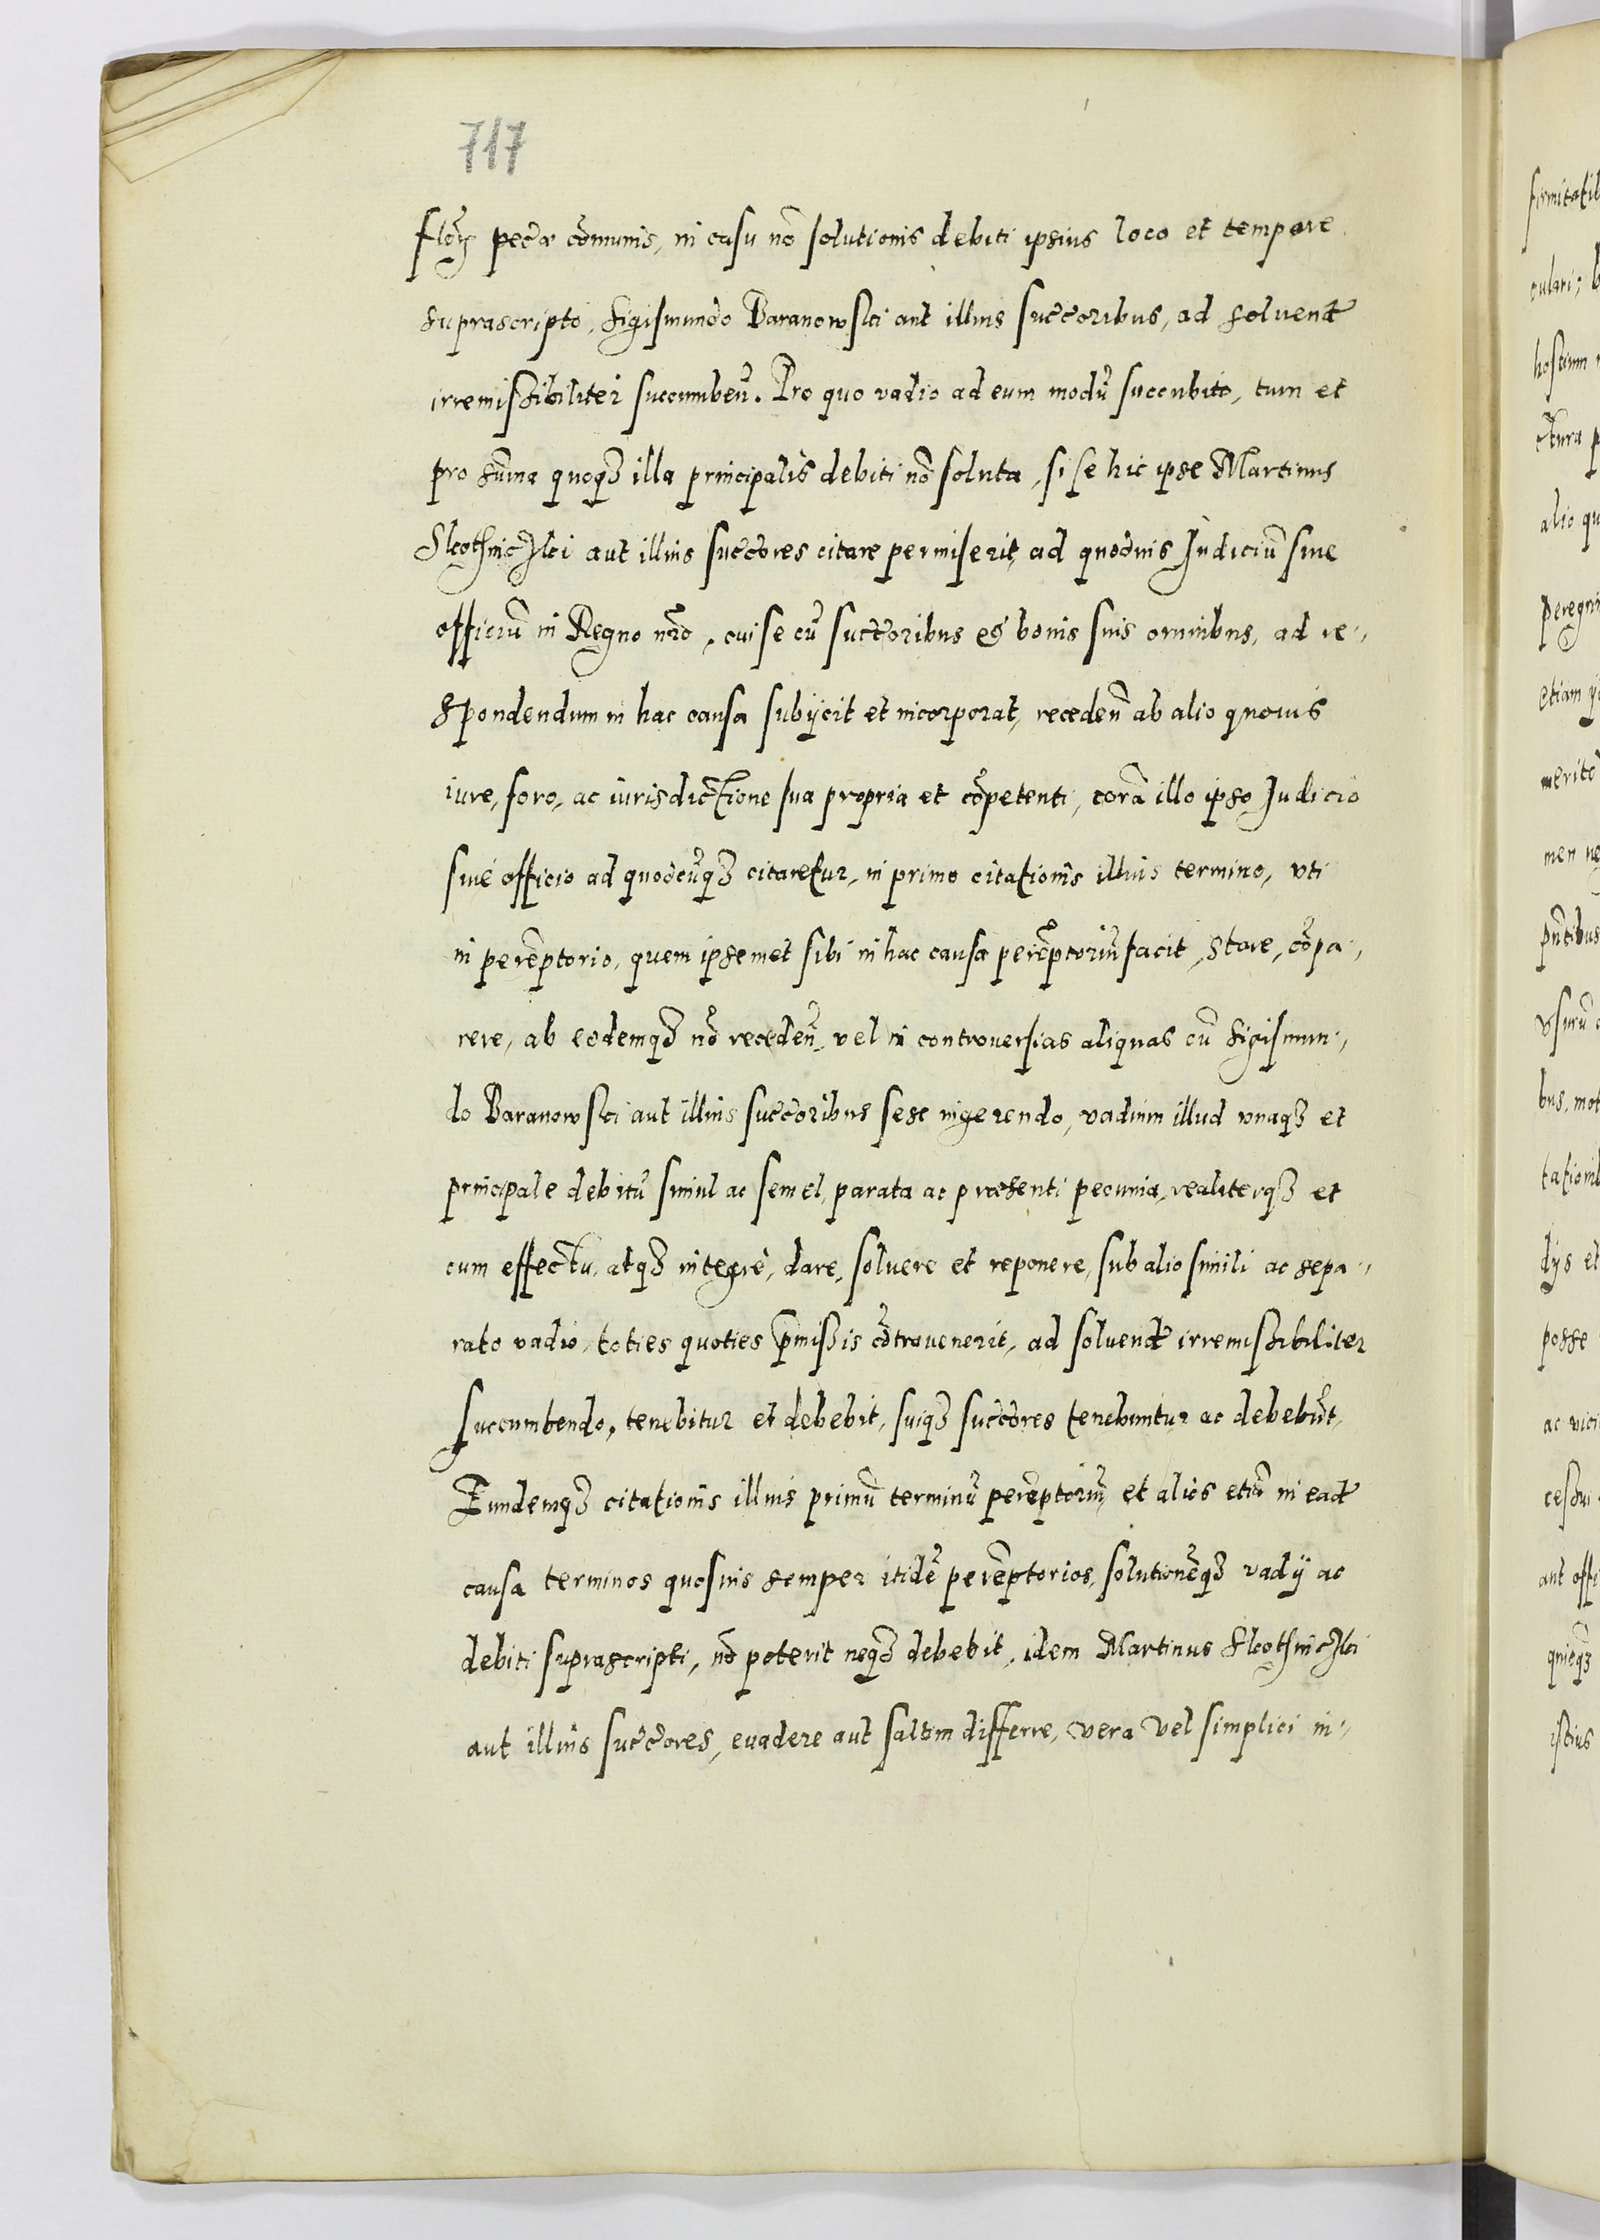 717
floꝝ pec̃ae cõmunis, in casu nõ solutionis debiti ipsius loco et tempore
suprascripto, Sigismundo Baranowski aut illius succ̃oribus, ad soluend̃
irremissibiliter succumbeñ. Pro quo vadio ad eum modũ succubito, tum et
pro sũma quoqȝ illa principalis debiti nõ soluta, si se hic ipse Martinus
Skothniczki aut illius succ̃ores citare permiserit, ad quoduis Judiciũ siue
officiũ in Regno nr̃o, cui se cũ succ̃oribus et bonis suis omnibus, ad re-
spondendum in hac causa subijcit et incorporat, recedeñ ab alio quouis
iure, foro, ac iurisdictione sua propria et cõpetenti, corã illo ipso Judicio
siue officio ad quodcũqȝ citaretur, in primo citationis illius termino, vti
in perẽptorio, quem ipsemet sibi in hac causa perẽptoriũ facit, stare, cõpa-
rere, ab eodemqȝ nõ recedeñ, vel in controuersias aliquas cũ Sigismun-
do Baranowski aut illius succ̃oribus sese ingerendo, vadium illud vnaqȝ et
principale debitũ simul ac semel, parata ac praesenti pecunia, realiterqȝ et
cum effectu, atqȝ integrè, dare, soluere et reponere, sub alio simili ac sepa-
rato vadio, toties quoties p̃missis cõtrauenerit, ad soluend̃ irremissibiliter
succumbendo, tenebitur et debebit, suiqȝ succ̃ores tenebuntur ac debebũt.
Eundemqȝ citationis illius primũ terminũ perẽptoriũ, et alios etiã in ead̃
causa terminos quosuis semper itidẽ perẽptorios, solutionẽqȝ vadij ac
debiti suprascripti, nõ poterit neqȝ debebit, idem Martinus Skothniczki
aut illius succ̃ores, euadere aut saltem differre, vera vel simplici in-